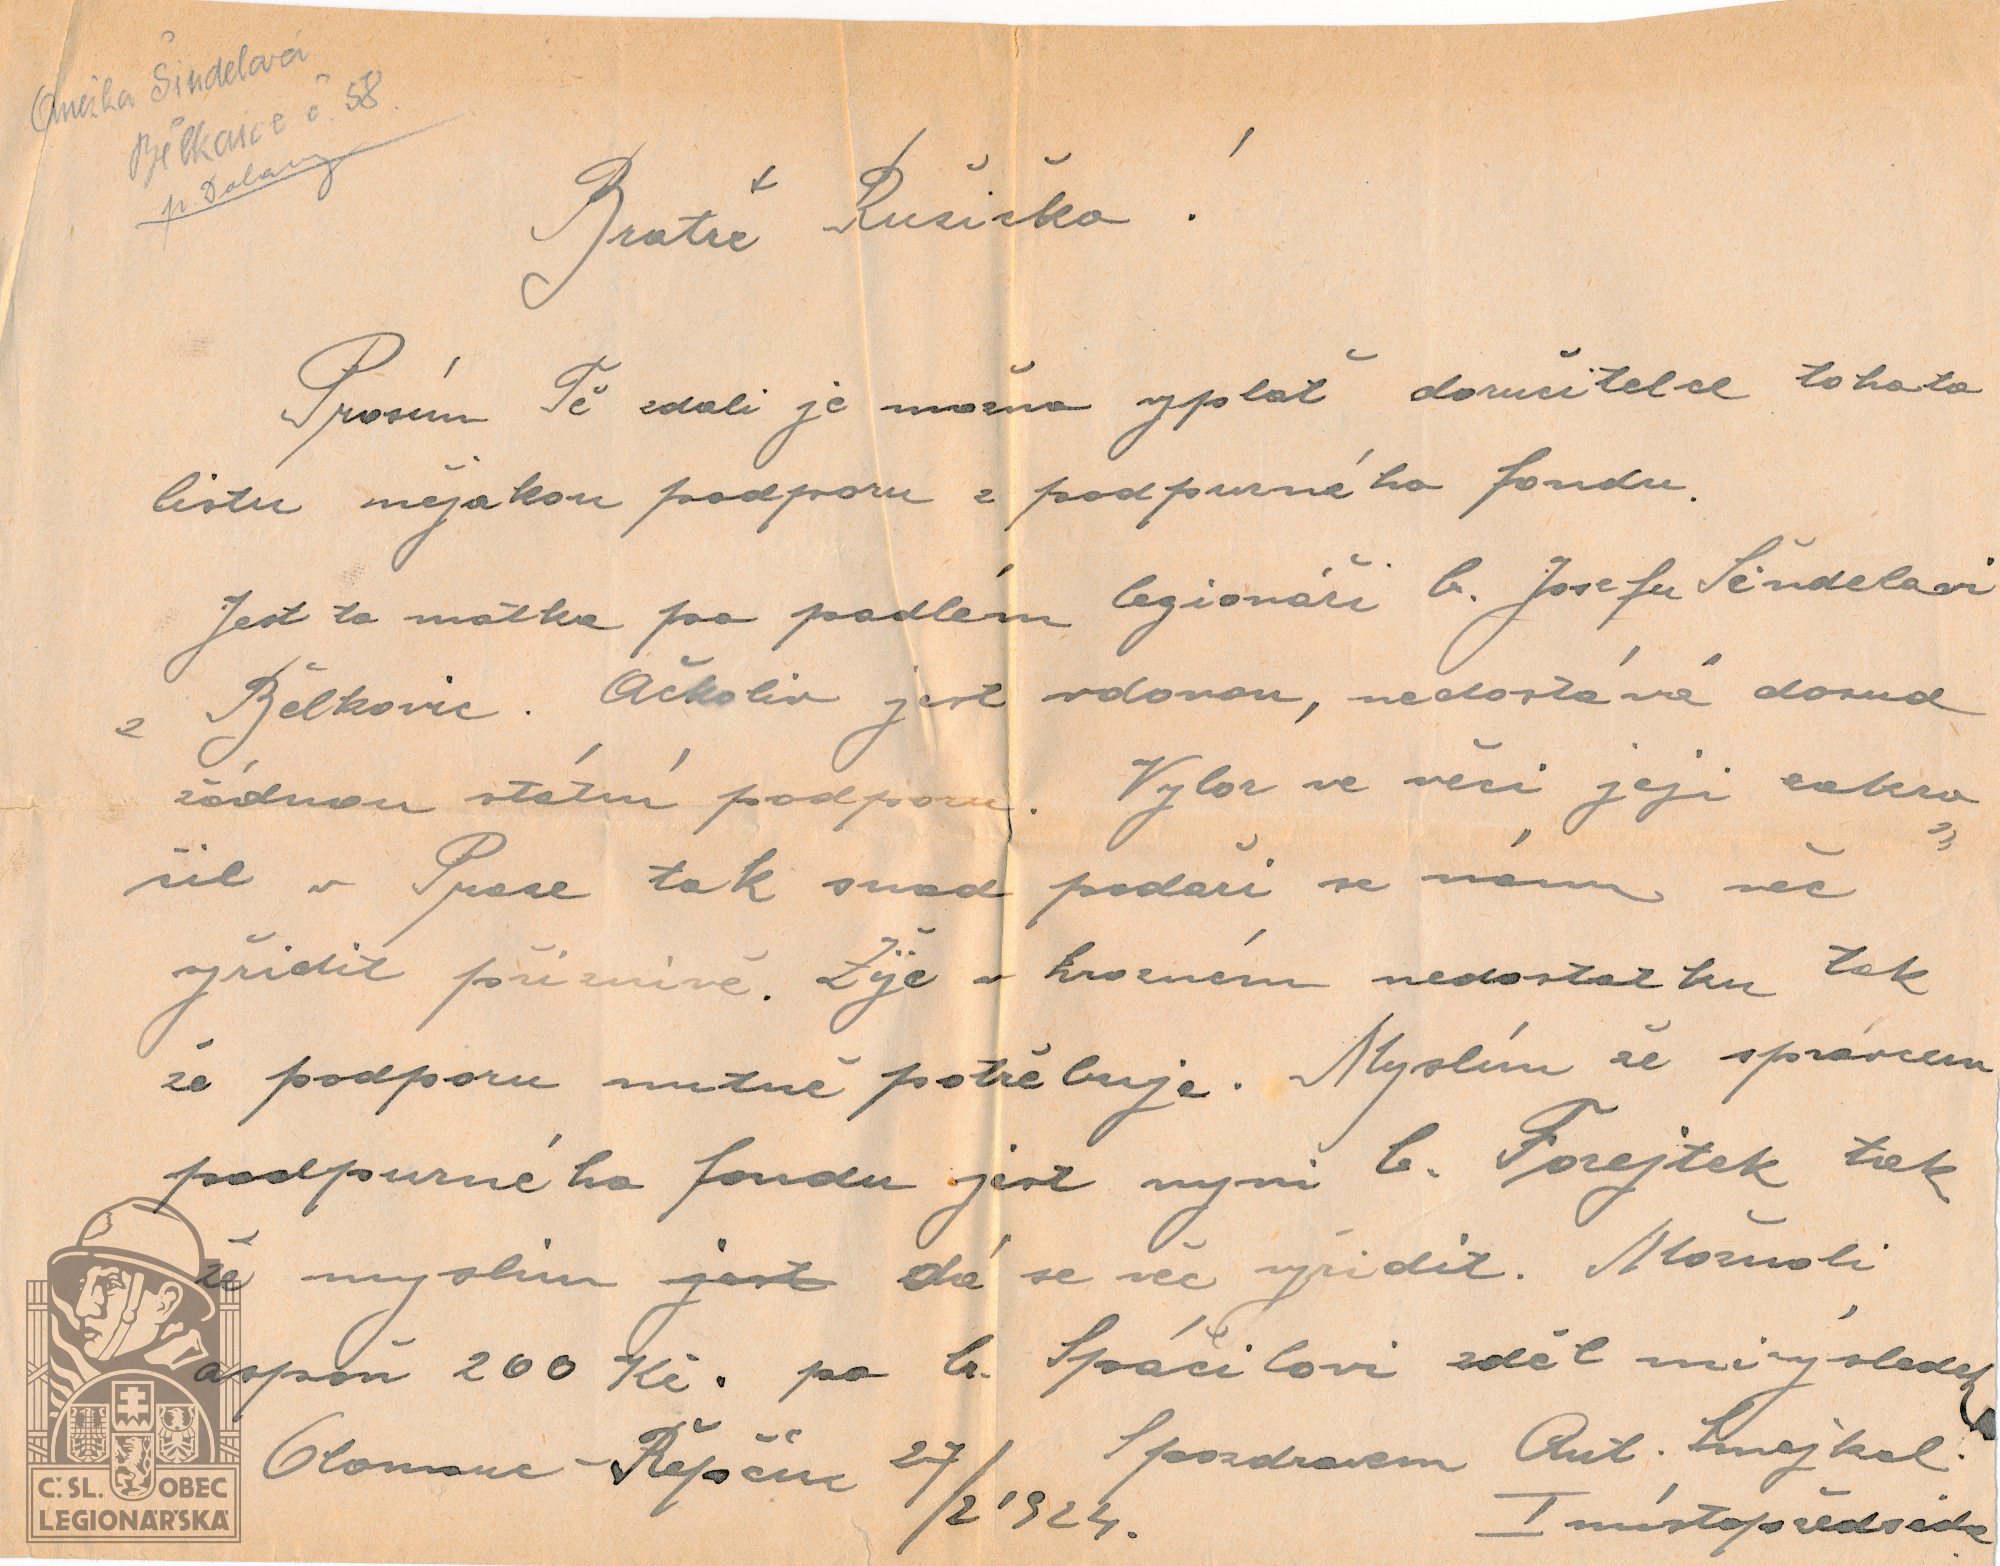 Anežka Šindelová
Bělkovice č. 58.
p. Dolany
Bratře Růžička!
Prosím Tě zdali je možna vyplat doručitelce tohoto
listu nějakou podporu z podpurného fondu.
Jest to matka po padlém legionáři br. Josefu Šindelovi
z Bělkovic. Ačkoliv jest vdovou, nedostává dosud
žádnou státní podporu. Výbor ve věci její zakro
čil v Praze tak snad podaří se nám věc
vyřidit příznivě. Žije v hrozném nedostatku tak
že podporu nutně potřebuje. Myslím že správcem
podpurného fondu jest nyní br. Forejtek tak
že myslím jest dá se věc vyřidit. Možnoli
aspoň 200 Kč. po br. Spáčilovi zděl mi výsledek
Olomouc - Řepčín 27/2 1924.
S pozdravem Ant. Smejkal.
I místopředseda
Č. SL. OBEC
LEGIONÁŘSKÁ